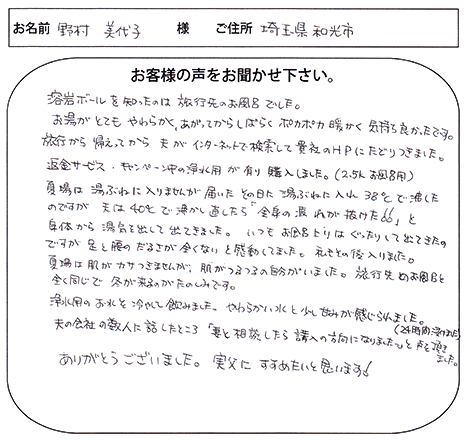 お名前 野村 美代子 様 ご住所 埼玉県 和光市
お客様の声をお聞かせ下さい。
溶岩ボールを知ったのは 旅行先のお風呂でした。
お湯がとても やわらかく、あがってからしばらく ポカポカ暖かく 気持ち良かったです。
旅行から 帰えってから 夫が インターネットで検索して 貴社のHPにたどりつきました。
返金サービス・キャンペーン中の浄水用が有り 購入しました。(2.5Lお風呂用)
夏場は 湯ぶねに入りませんが 届いた その日に 湯ぶねに入れ 38℃で沸した
のですが 夫は 40℃で 沸かし直したら「全身の 疲れが抜けた」と
身体から 湯気を出して 出てきました。いつも お風呂上りは ぐったりして出てきたの
ですが 足と腰の だるさが 全くない と感動してました。私もその後入りました。
夏場は肌が カサつきませんが、肌がつるつるの自分がいました。旅行先のお風呂と
全く同じで 冬が来るのがたのしみです。
浄水用の お水と 冷やして飲みました。やわらかい水と 少し甘みが感じられました。
(24時間漬けました)
夫の会社の数人に 話したところ「妻と相談したら 購入の方向になりました」と 声を頂き
ました。
ありがとうございました。実父に すすめたいと思います!